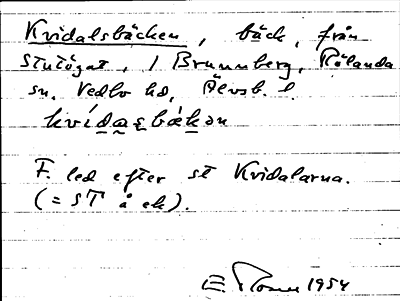 Kvidalsbäcken, bäck, från
Stutögat, i Brunnberg, Rölanda
sn. Vedbo hd, Älvsb. l.
kvídasbækən
F. led efter st Kvidalarna.
(= ST å ek).
1954